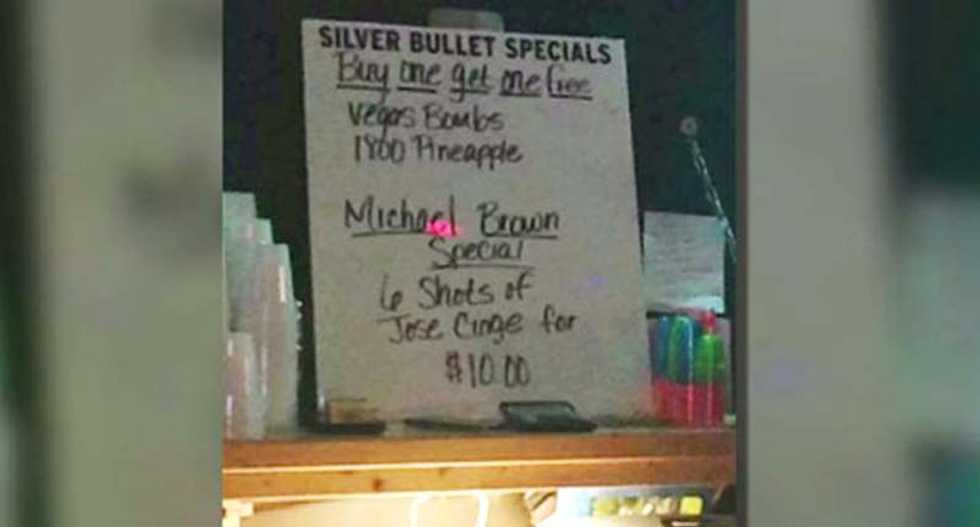 SILVER BULLET SPECIALS
Buy one get one free
Vegas Bombs
1800 Pineapple
Michael Brown
Special
6 Shots of
Jose Cinge for
$10.00